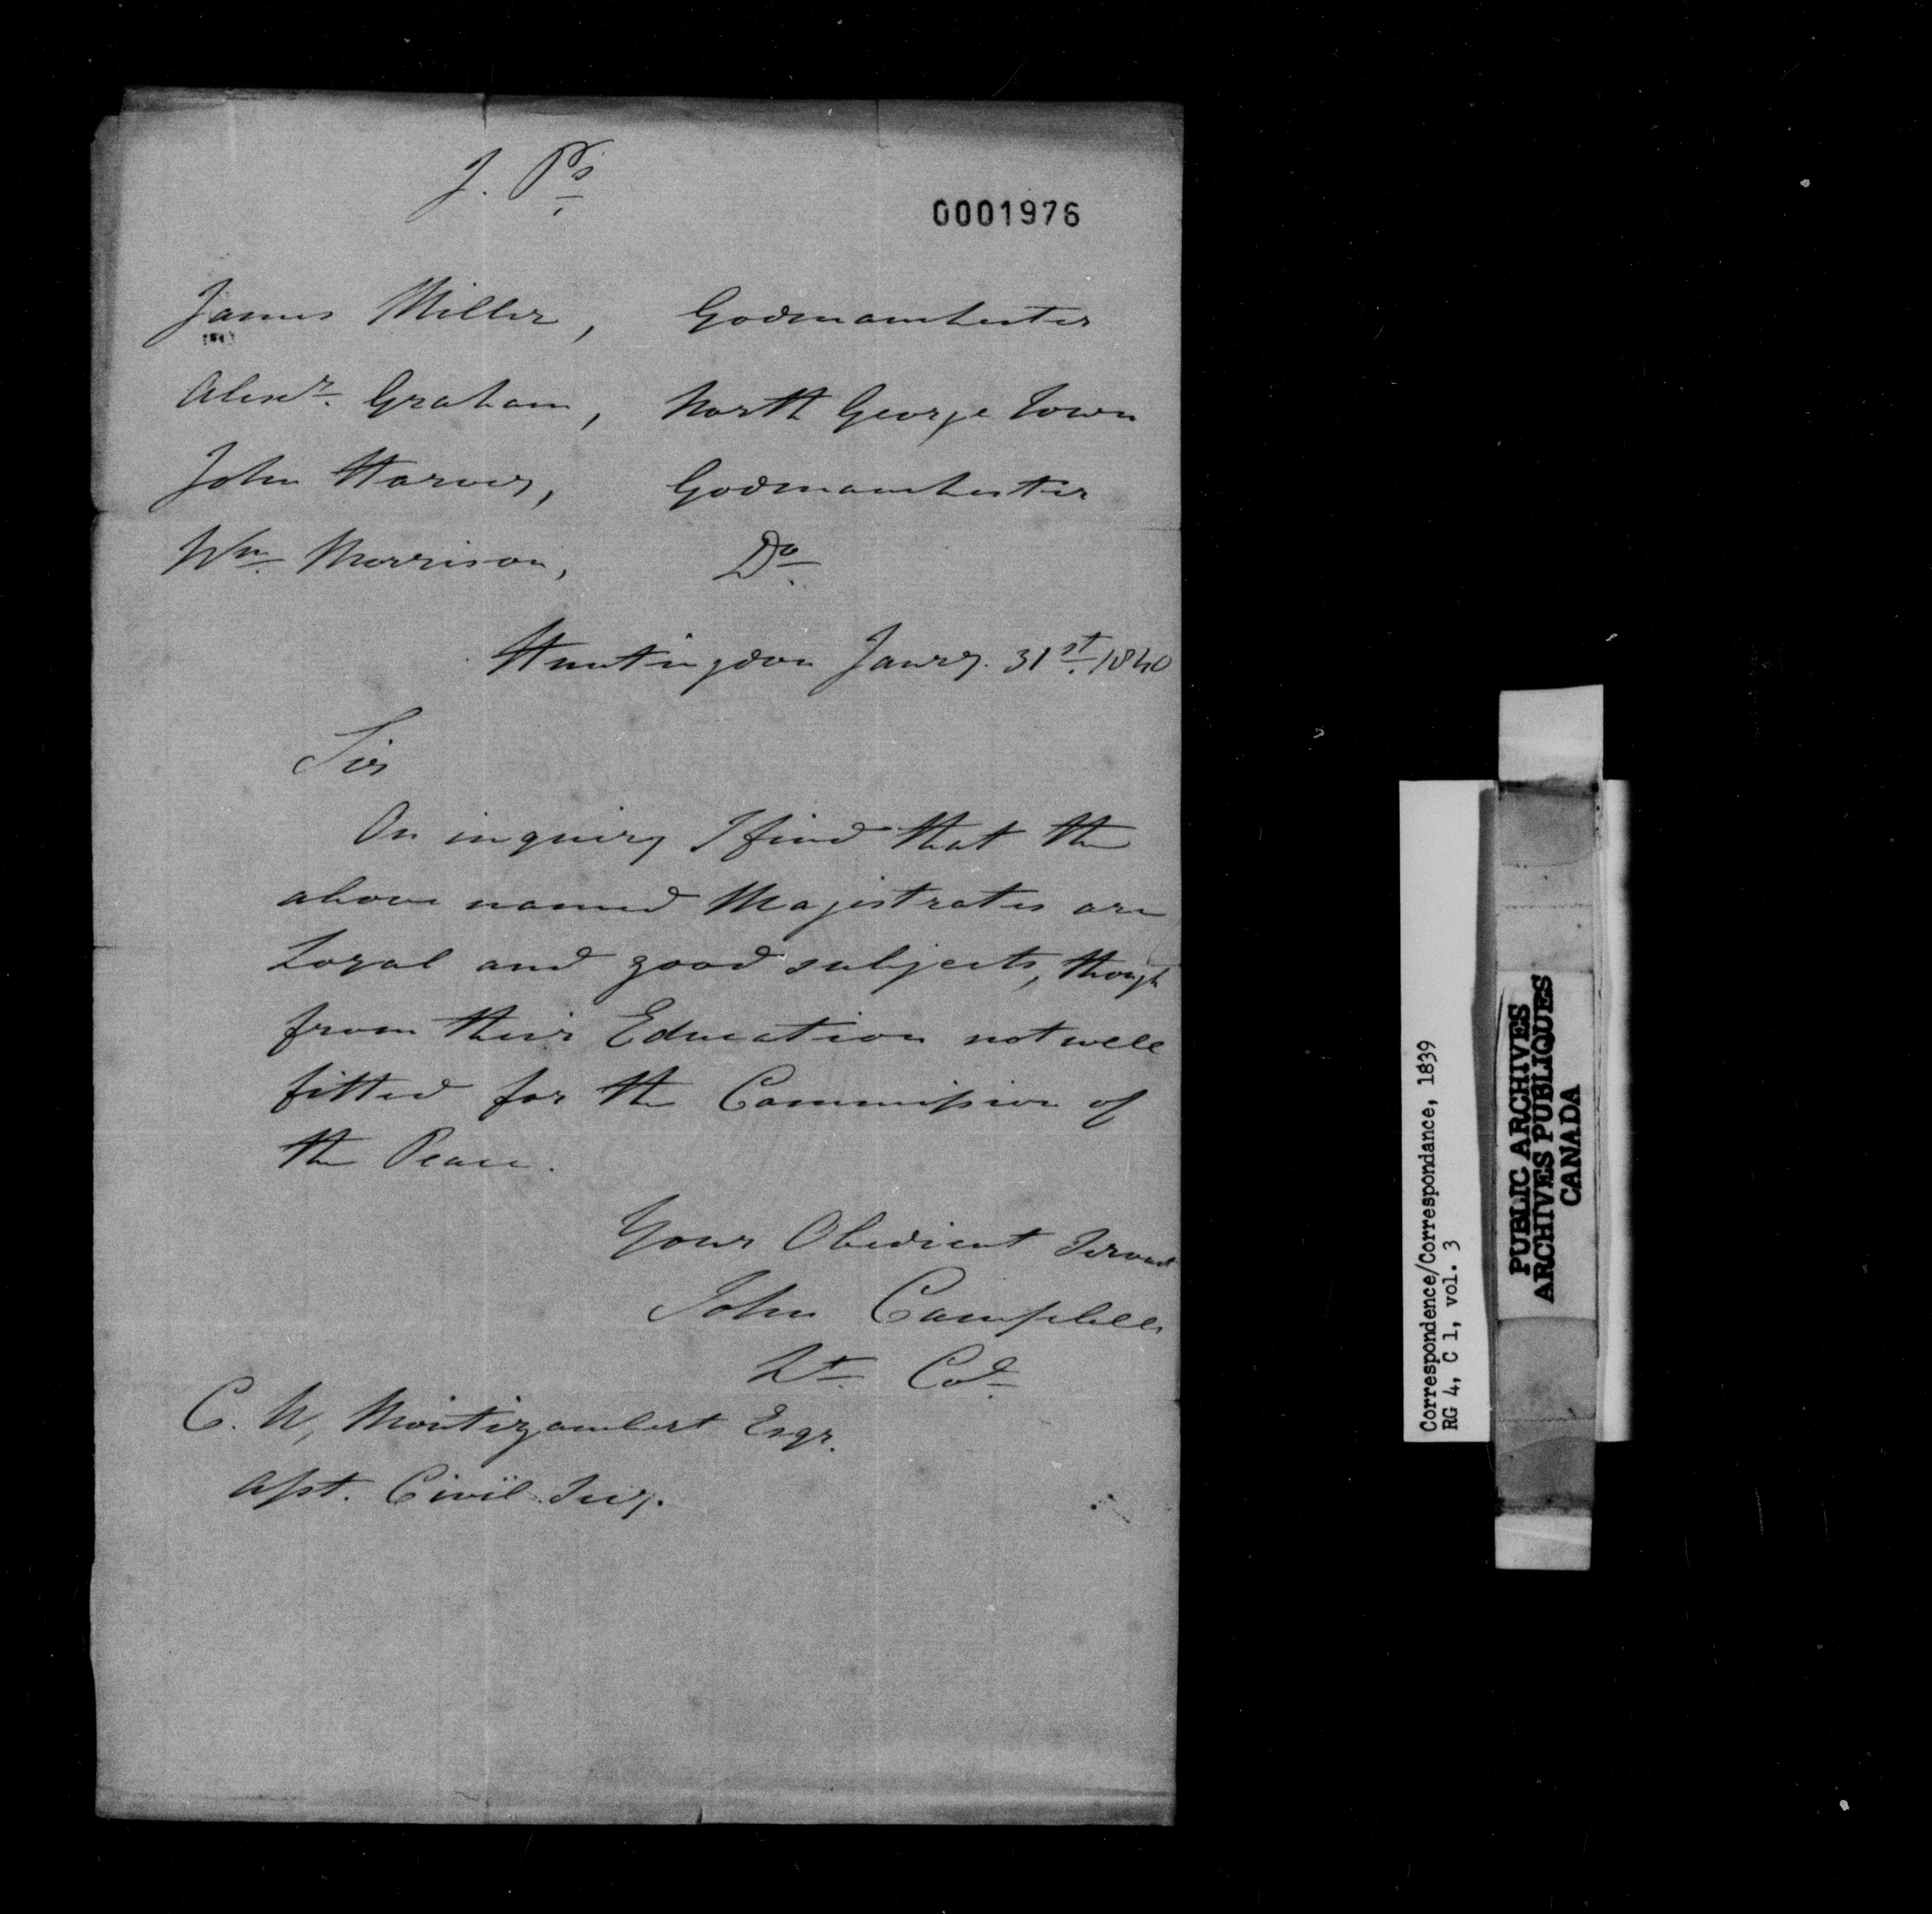 J. Ps
0001976
James Miller, Godmanchester
Alexr. Graham, North George Town
John Harvey, Godmanchester
Wm. Morrison, Do.
Huntingdon Jany. 31st. 1840
Sir
On inquiry I find that the
above named Magistrates are
Loyal and good subjects, though
from their Education not well
fitted for the Commission of
the Peace.
Your Obedient Servant
John Campbell
Lt. Col.
C. W, Montizambert Esqr.
Asst. Civil Secy.
Correspondence/Correspondance, 1839
RG 4, C 1, vol. 3
PUBLIC ARCHIVES
ARCHIVES PUBLIQUES
CANADA